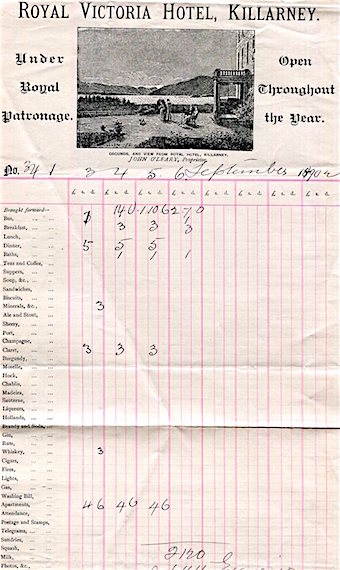 ROYAL VICTORIA HOTEL, KILLARNEY.
Under Royal Patronage.
Open Throughout the Year.
GROUNDS, AND VIEW FROM ROYAL HOTEL, KILLARNEY.
JOHN O'LEARY, Proprietor.
No. 341 3 4 5. 6 September
£ s d £ s d £ s d £ s d £ s d £ s d £ s d
Brought forward—
Bus, 1 1
Breakfast, 3 3 3
Lunch,
Dinner, 5 5 5
Baths, 1 1 1
Teas and Coffee,
Suppers,
Soup, &c.,
Sandwiches,
Biscuits,
Minerals, &c., 3
Ale and Stout,
Sherry,
Port,
Champagne,
Claret, 3 3 3
Burgundy,
Moselle,
Hock,
Chablis,
Madeira,
Sauterne,
Liqueurs,
Hollands,
Brandy and Soda,
Gin,
Rum,
Whiskey, 3
Cigars,
Fires,
Lights,
Gas,
Washing Bill,
Apartments, 46 46 46
Attendance,
Postage and Stamps,
Telegrams,
Sundries,
Squash,
Milk,
Photos, &c.,